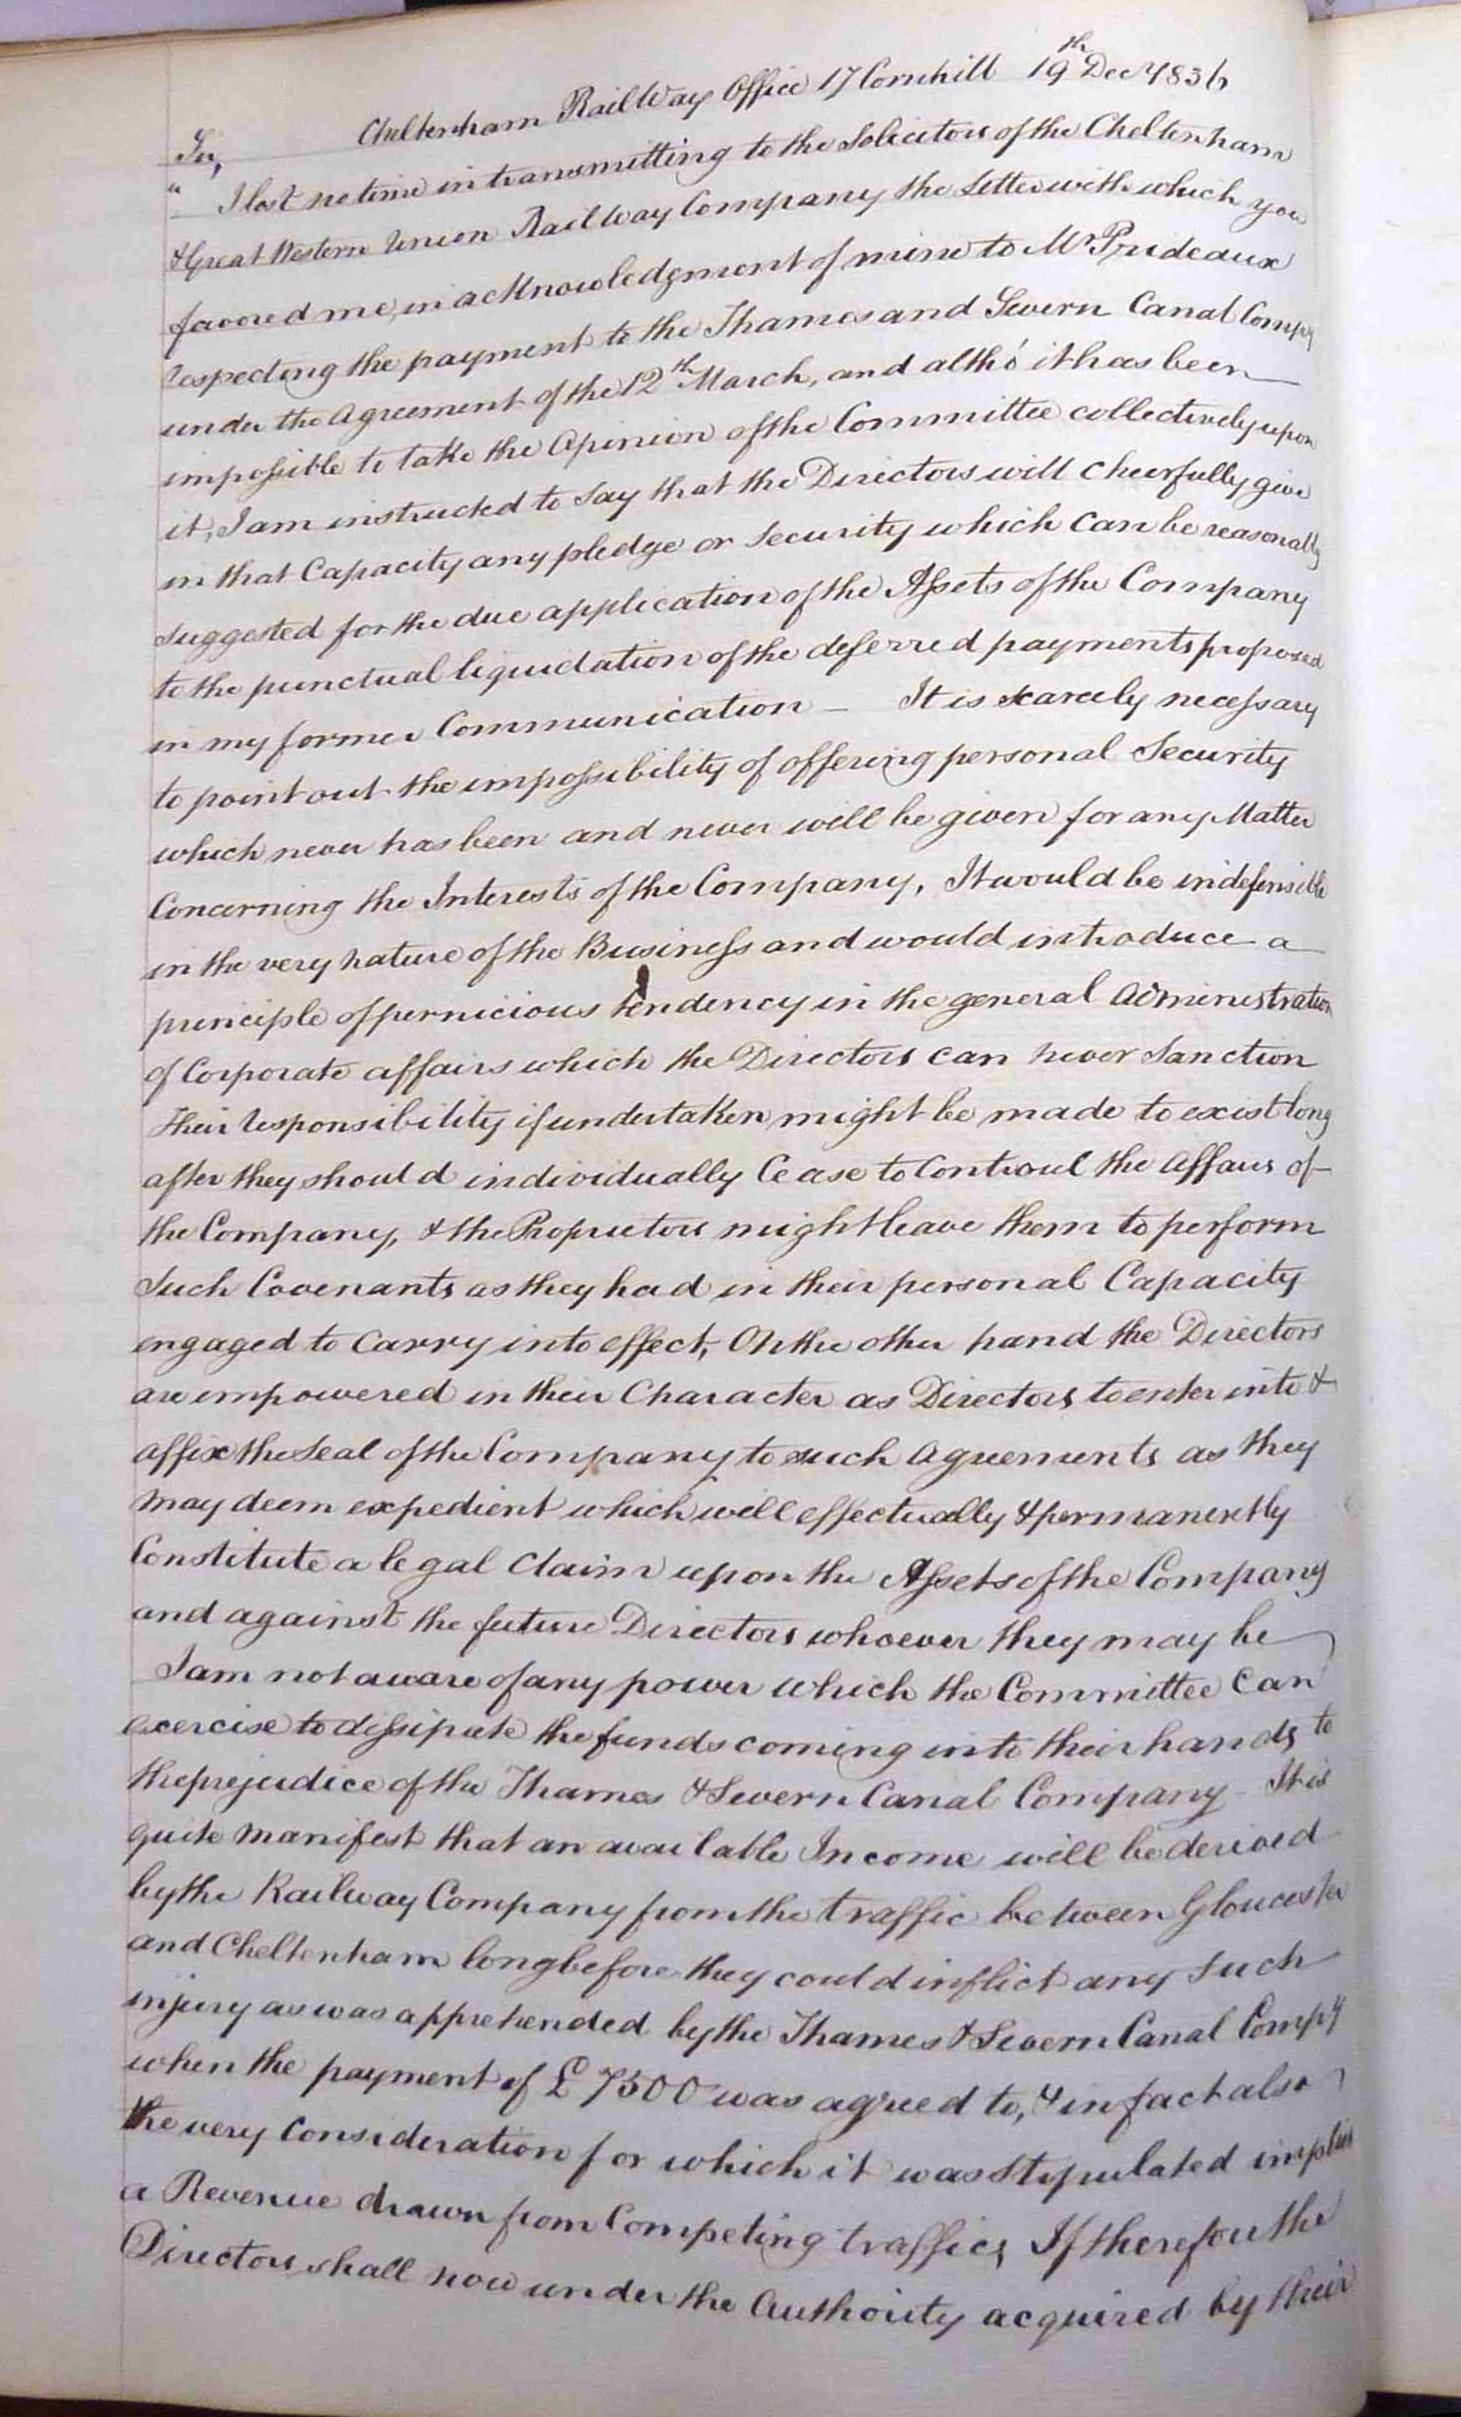 Cheltenham RailWay Office 17 Cornhill 19th Decr 1836
Sir,
" I lost no time in transmitting to the Solicitors of the Cheltenham
& Great Western Union RailWay Company the Letter with which you
favored me, in acknowledgment of mine to Mr Prideaux
respecting the payment to the Thames and Severn Canal Compy
under the Agreement of the 12th March, and altho' it has been
impossible to take the Opinion of the Committee collectively upon
it, I am instructed to say that the Directors will cheerfully give
in that Capacity any pledge or Security which can be reasonably
suggested for the due application of the Assets of the Company
to the punctual liquidation of the deferred payments proposed
in my former Communication — It is scarcely necessary
to point out the impossibility of offering personal Security
which never has been and never will be given for any Matter
Concerning the Interests of the Company, It would be indefensible
in the very nature of the Business and would introduce a
principle of pernicious tendency in the general administration
of Corporate affairs which the Directors can never Sanction
Their responsibility if undertaken might be made to exist long
after they should individually Cease to Controul the affairs of
the Company, & the Proprietors might leave them to perform
Such Covenants as they had in their personal Capacity
engaged to Carry into effect, On the other hand the Directors
are empowered in their Character as Directors to enter into &
affix the Seal of the Company to such Agreements as they
may deem expedient which will effectually & permanently
Constitute a legal Claim upon the Assets of the Company
and against the future Directors whoever they may be
I am not aware of any power which the Committee Can
exercise to dissipate the funds coming into their hands to
the prejudice of the Thames & Severn Canal Company — It is
quite manifest that an available Income will be derived
by the Railway Company from the traffic between Gloucester
and Cheltenham long before they could inflict any such
injury as was apprehended by the Thames & Severn Canal Compy
when the payment of £7500 was agreed to, & in fact also
the very Consideration for which it was stipulated implies
a Revenue drawn from Competing traffic, If therefore the
Directors shall now under the Authority acquired by their